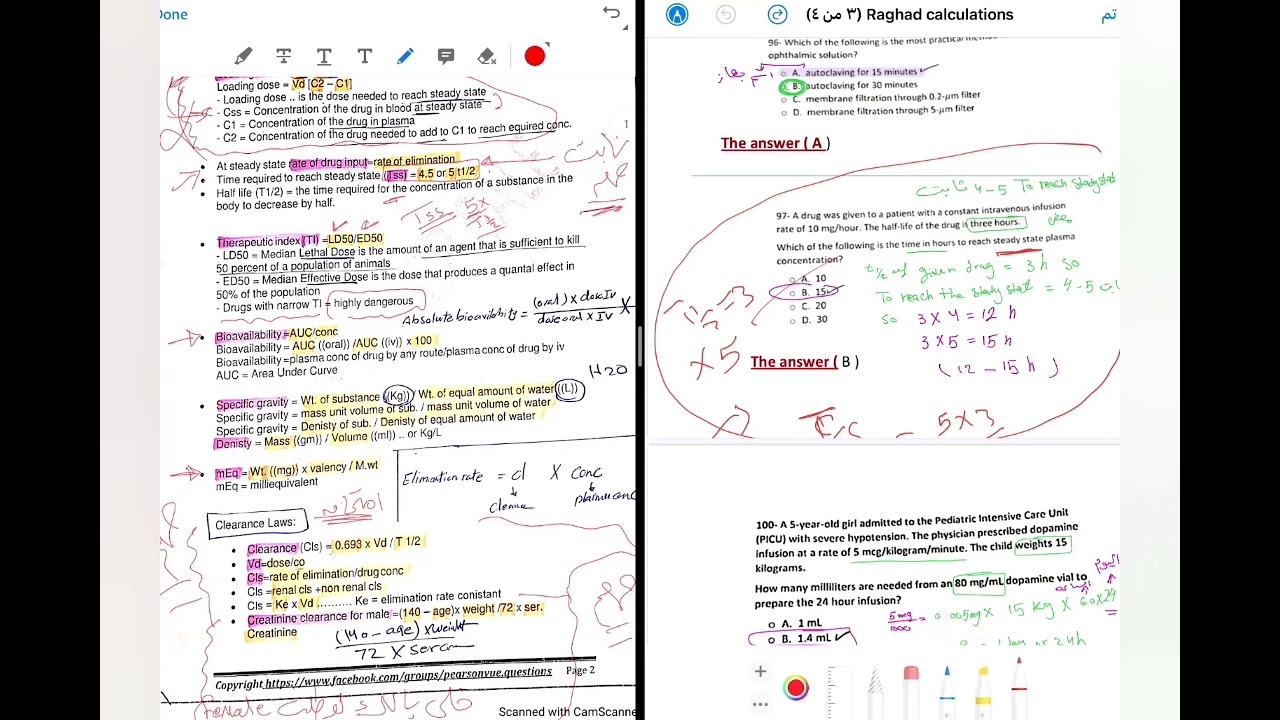 Done
Loading dose = Vd (C2 – C1)
- Loading dose .. is the dose needed to reach steady state
- Css = Concentration of the drug in blood at steady state
- C1 = Concentration of the drug in plasma
- C2 = Concentration of the drug needed to add to C1 to reach equired conc.
1
• At steady state rate of drug input=rate of elimination
• Time required to reach steady state (Tss) = 4.5 or 5 t1/2
• Half life (T1/2) = the time required for the concentration of a substance in the
body to decrease by half.
ثابت
Tss 5x
T½
• Therapeutic index (TI) =LD50/ED50
- LD50 = Median Lethal Dose is the amount of an agent that is sufficient to kill
50 percent of a population of animals
- ED50 = Median Effective Dose is the dose that produces a quantal effect in
50% of the population
- Drugs with narrow TI = highly dangerous
Absolute bioavailability = (oral) x dose Iv x
dose oral x Iv
• Bioavailability =AUC/conc
Bioavailability = AUC ((oral)) /AUC ((iv)) x 100
Bioavailability =plasma conc of drug by any route/plasma conc of drug by iv
AUC = Area Under Curve
H2O
• Specific gravity = Wt. of substance ((Kg)) / Wt. of equal amount of water ((L))
Specific gravity = mass unit volume of sub. / mass unit volume of water
Specific gravity = Denisty of sub. / Denisty of equal amount of water
Denisty = Mass ((gm)) / Volume ((ml)) .. or Kg/L
• mEq = Wt. ((mg)) x valency / M.wt
mEq = milliequivalent
Elimination rate = cl X conc
plasma conc
Clearance Laws:
• Clearance (Cls) = 0.693 x Vd / T 1/2
• Vd=dose/co
• Cls=rate of elimination/drug conc
• Cls =renal cls +non renal cls
• Cls = Ke x Vd ......... Ke = elimination rate conistant
• Creatinine clearance for male =(140 – age)x weight /72 x ser.
Creatinine
(140 - age) x weight
72 X serum
Copyright https://www.facebook.com/groups/pearsonvue.questions Page 2
female
Scanned with CamScanne
Raghad calculations (٣ من ٤)
تم
96- Which of the following is the most practical
ophthalmic solution?
○ A. autoclaving for 15 minutes
○ B. autoclaving for 30 minutes
○ C. membrane filtration through 0.2-µm filter
○ D. membrane filtration through 5-µm filter
The answer ( A )
ثابت 4-5 To reach steady stat
97- A drug was given to a patient with a constant intravenous infusion
rate of 10 mg/hour. The half-life of the drug is three hours.
Which of the following is the time in hours to reach steady state plasma
concentration?
○ A. 10
○ B. 15
○ C. 20
○ D. 30
t½ of given drug = 3 h so
To reach the steady stat = 4-5 ثابت
so 3 x 4 = 12 h
3 x 5 = 15 h
( 12 - 15 h )
T½ = 3
x 5
The answer ( B )
5 x 3
100- A 5-year-old girl admitted to the Pediatric Intensive Care Unit
(PICU) with severe hypotension. The physician prescribed dopamine
infusion at a rate of 5 mcg/kilogram/minute. The child weights 15
kilograms.
How many milliliters are needed from an 80 mg/mL dopamine vial to
prepare the 24 hour infusion?
5mg
1000
= 0.005mg x 15 Kg x 60x24
○ A. 1 mL
○ B. 1.4 mL